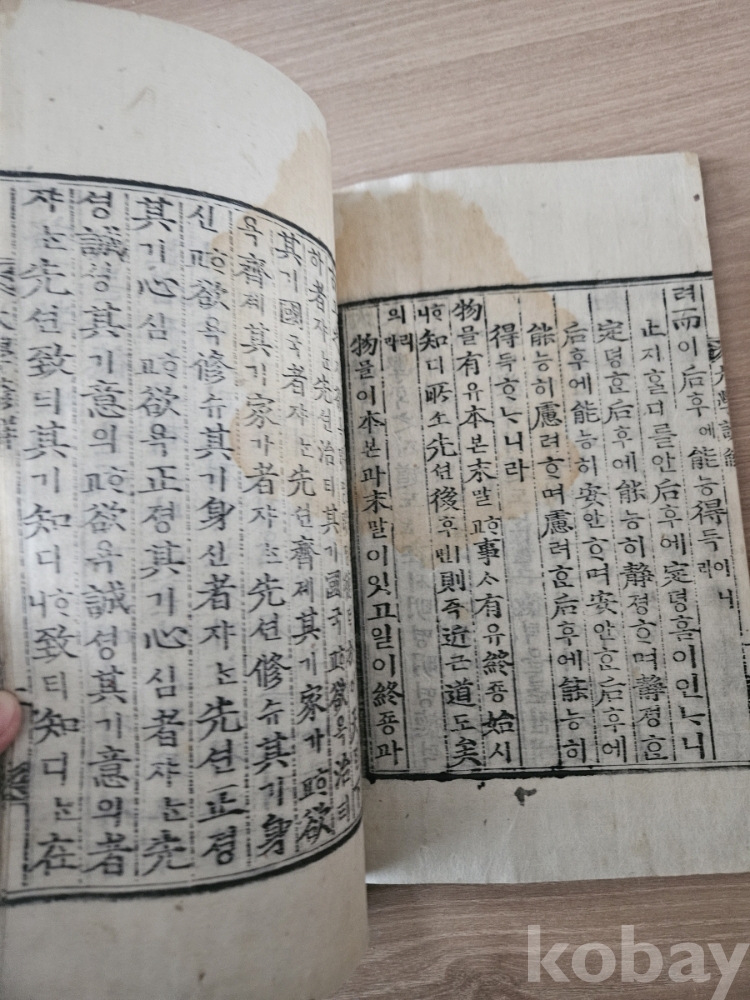 大學諺解
려而이后후에能능得득이니리
止지ᄒᆞᆯ디를안后후에定뎡홈이인ᄂᆞ니
定뎡ᄒᆞᆫ后후에能능히靜졍ᄒᆞ며靜졍ᄒᆞᆫ
后후에能능히安안ᄒᆞ며安안ᄒᆞᆫ后후에
能능히慮려ᄒᆞ며慮려ᄒᆞᆫ后후에能능히
得득ᄒᆞᄂᆞ니라
物믈有유本본末말ᄒᆞ고事ᄉᆞ有유終죵始시
ᄒᆞ니知디所소先션後후ㅣ면則즉近근道도矣
의리라
物믈이本본과末말이잇고일이終죵과
하者쟈ᄂᆞᆫ先션治티其기國국ᄒᆞ고欲욕治티
其기國국者쟈ᄂᆞᆫ先션齊졔其기家가ᄒᆞ고欲
욕齊졔其기家가者쟈ᄂᆞᆫ先션修슈其기身
신ᄒᆞ고欲욕修슈其기身신者쟈ᄂᆞᆫ先션正졍
其기心심ᄒᆞ고欲욕正졍其기心심者쟈ᄂᆞᆫ先
션誠셩其기意의ᄒᆞ고欲욕誠셩其기意의者
쟈ᄂᆞᆫ先션致티其기知디ᄒᆞ니致티知디ᄂᆞᆫ在
kobay